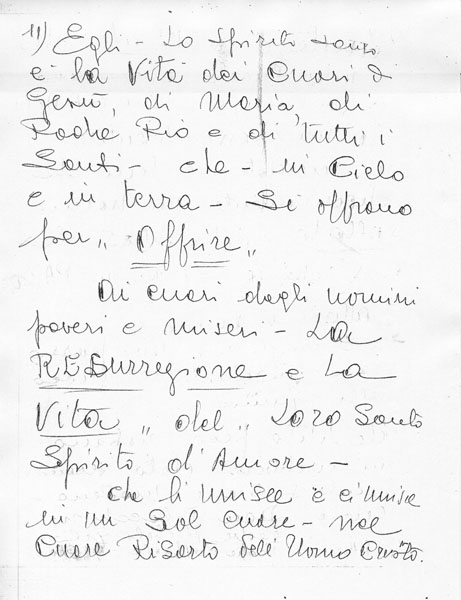 11) Egli - Lo Spirito Santo
è la Vita dei Cuori di
Gesù, di Maria, di
Padre Pio e di tutti i
Santi - che - in Cielo
e in terra - Si offrono
per „ Offrire „
Ai cuori degli uomini
poveri e miseri - LA
RESurregione e La
Vita „ del „ Loro Santo
Spirito d'Amore -
che li unisce e ci unisce
in un Sol Cuore - nel
Cuore Risorto dell'Uomo Cristo.